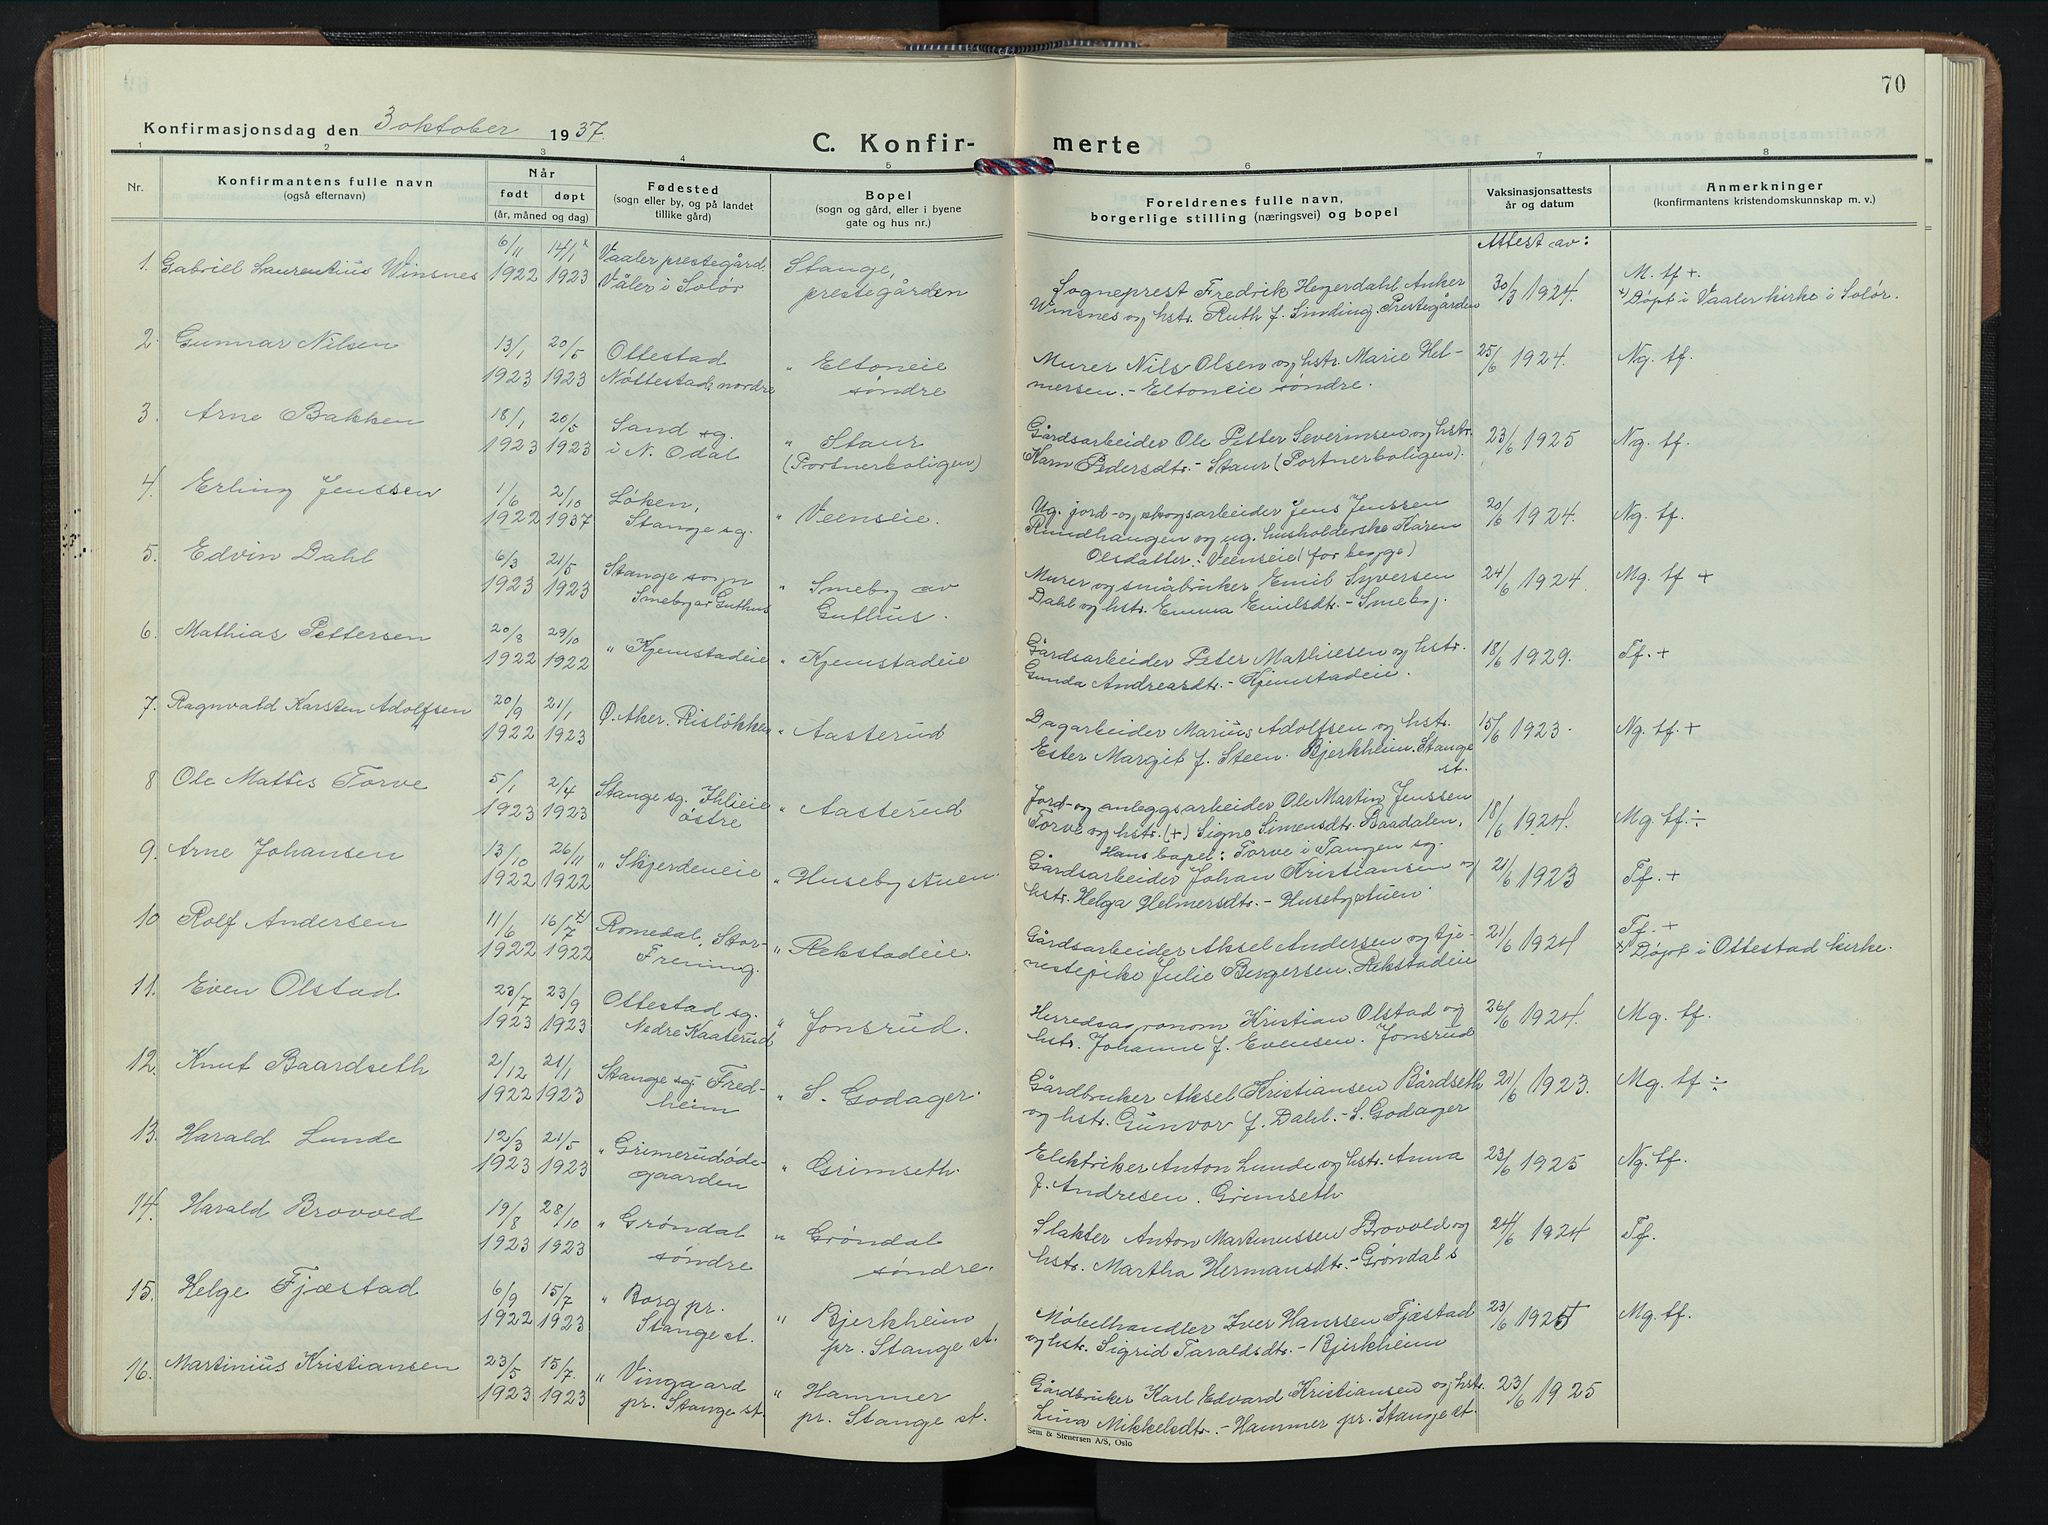 70
Konfirmasjonsdag den 3 oktober 1937.
C. Konfir-
merte
1 2 3 4 5 6 7 8
Nr.
Konfirmantens fulle navn
(også efternavn)
Når
født døpt
(år, måned og dag)
Fødested
(sogn eller by, og på landet
tillike gård)
Bopel
(sogn og gård, eller i byene
gate og hus nr.)
Foreldrenes fulle navn,
borgerlige stilling (næringsvei) og bopel
Vaksinasjonsattests
år og datum
Anmerkninger
(konfirmantens kristendomskunnskap m. v.)
Attest av:
1. Gabriel Laurentius Winsnes 6/11 1922 14/1 x 1923 Vaaler prestegård. Våler i Solør Stange, prestegården
Sogneprest Fredrik Heyerdahl Anker
Winsnes og hstr. Ruth f. Sinding. Prestegården
30/3 1924. M. tf +.
x) Døpt i Vaaler kirke i Solør.
2. Gunnar Nilsen 13/1 1923 20/5 1923 Ottestad Nöttestad nordre " Eltoneie søndre
Murer Nils Olsen og hstr. Marie Hel-
mersen. - Eltoneie søndre.
25/6 1924. Ng. tf.
3. Arne Bakken 18/1 1923 20/5 1923 Sand sg. i N. Odal " Staur (Portnerboligen)
Gårdsarbeider Ole Petter Severinsen og hstr.
Karn Pedersdtr. - Staur (Portnerboligen).
23/6 1925 Ng. tf.
4. Erling Jenssen 1/6 1922 2/10 1937 Løken, Stange sg. " Veenseie.
Ug. jord- og skogsarbeider Jens Jenssen
Rundhaugen og ug. husholderske Karen
Olsdatter: Veenseie (for begge)
20/6 1924. Ng. tf.
5. Edvin Dahl 6/3 1923 21/5 1923 Stange sogn Smeby av Guthus " Smeby av Guthus.
Murer og småbruker Emil Syversen
Dahl og hstr. Emma Emilsdtr. - Smeby.
24/6 1924. Mg. tf +
6. Mathias Pettersen 20/8 1922 29/10 1922 " Kjemstadeie " Kjemstadeie
Gårdsarbeider Peter Mathiesen og hstr.
Gunda Andreasdtr. - Kjemstadeie.
18/6 1929. Tf. +
7. Ragnvald Karsten Adolfsen 20/9 1922 21/1 1923 Ø. Aker. Risløkken " Aasterud
Dagarbeider Marius Adolfsen og hstr.
Ester Margit f. Steen. Bjerkheim. Stange
st.
15/6 1923. Ng. tf. +
8 Ole Mattis Torve 5/1 1923 2/4 1923 Stange sg. Ihlieie østre " Aasterud
Jord- og anleggsarbeider Ole Martin Jenssen
Torve og hstr. (+) Signe Simensdtr. Baadalen.
Hans bopel: Torve i Tangen sg.
18/6 1924. Mg. tf. ÷
9. Arne Johansen 13/10 1922 26/11 1922 " Skjerdeneie " Husebystuen.
Gårdsarbeider Johan Kristiansen og
hstr. Helga Helmersdtr. - Husebystuen.
21/6 1923 Tf. +
10 Rolf Andersen 11/6 1922 16/7 x) 1922 Romedal, Stor-Frening. " Rekstadeie.
Gårdsarbeider Aksel Andersen og tje-
nestepike Julie Bergersen. Rekstadeie
21/6 1924 Tf. +
x) Døpt i Ottestad kirke.
11. Even Olstad 23/7 1923 23/9 1923 Ottestad sg. Nedre Kaaterud " Jonsrud.
Herredsagronom Kristian Olstad og
hstr. Johanne f. Evensen. Jonsrud
26/6 1924. Mg. tf.
12. Knut Baardseth 2/12 1922 21/1 1923 Stange sg. Fred-heim " S. Godager.
Gårdbruker Aksel Kristiansen Bårdseth
og hstr. Gunvor f. Dahl. - S. Godager
21/6 1923. Mg. tf ÷
13. Harald Lunde 12/3 1923 21/5 1923 " Grimerudøde-gaarden " Grimseth.
Elektriker Anton Lunde og hstr. Anna
f. Andresen. Grimseth.
23/6 1925 Ng. tf.
14. Harald Brovold 19/8 1923 28/10 1923 " Grøndal søndre " Grøndal søndre.
Slakter Anton Martinussen Brovold og
hstr. Martha Hermansdtr. - Grøndal s
24/6 1924 Tf.
15. Helge Fjæstad 6/9 1922 15/7 1923 " Borg pr. Stange st. " Bjerkheim pr. Stange st.
Møbelhandler Iver Hanssen Fjæstad
og hstr. Sigrid Taraldsdtr. - Bjerkheim
23/6 1925 Mg. tf.
16. Martinius Kristiansen 23/5 1923 15/7. 1923 " Vingaard pr. Stange st. " Hammer pr. Stange st.
Gårdbruker Karl Edvard Kristiansen og hstr.
Lina Mikkelsdtr. - Hammer pr. Stange st.
23/6 1925
Sem & Stenersen A/S, Oslo